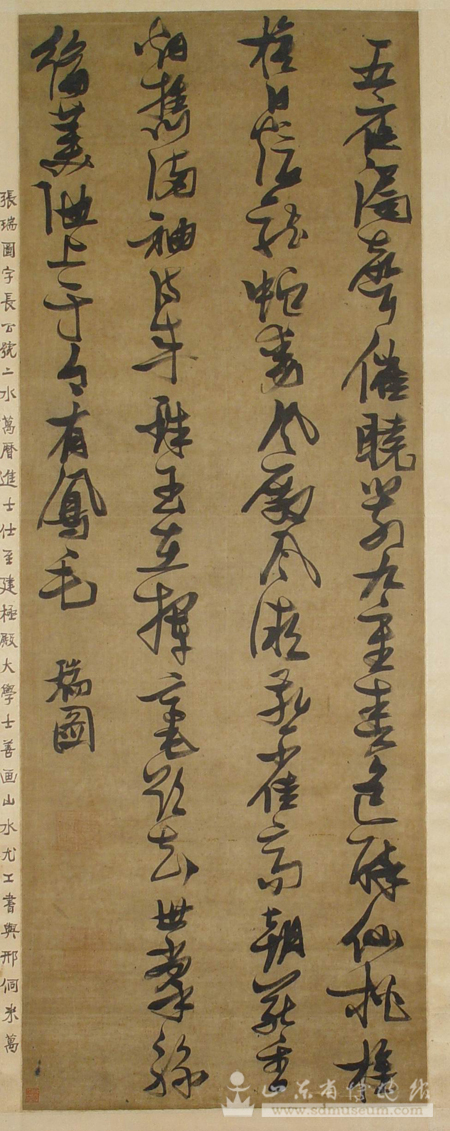 五夜漏聲催曉箭九重春色醉仙桃旌
旂日煖龍蛇動宮殿風微燕雀高朝罷香
烟攜滿袖詩成珠玉在揮毫欲知世掌絲
綸美池上于今有鳳毛 瑞圖
張瑞圖字長公號二水萬曆進士仕至建極殿大學士善画山水尤工書與邢侗米萬
山东省博物馆
www.sdmuseum.com